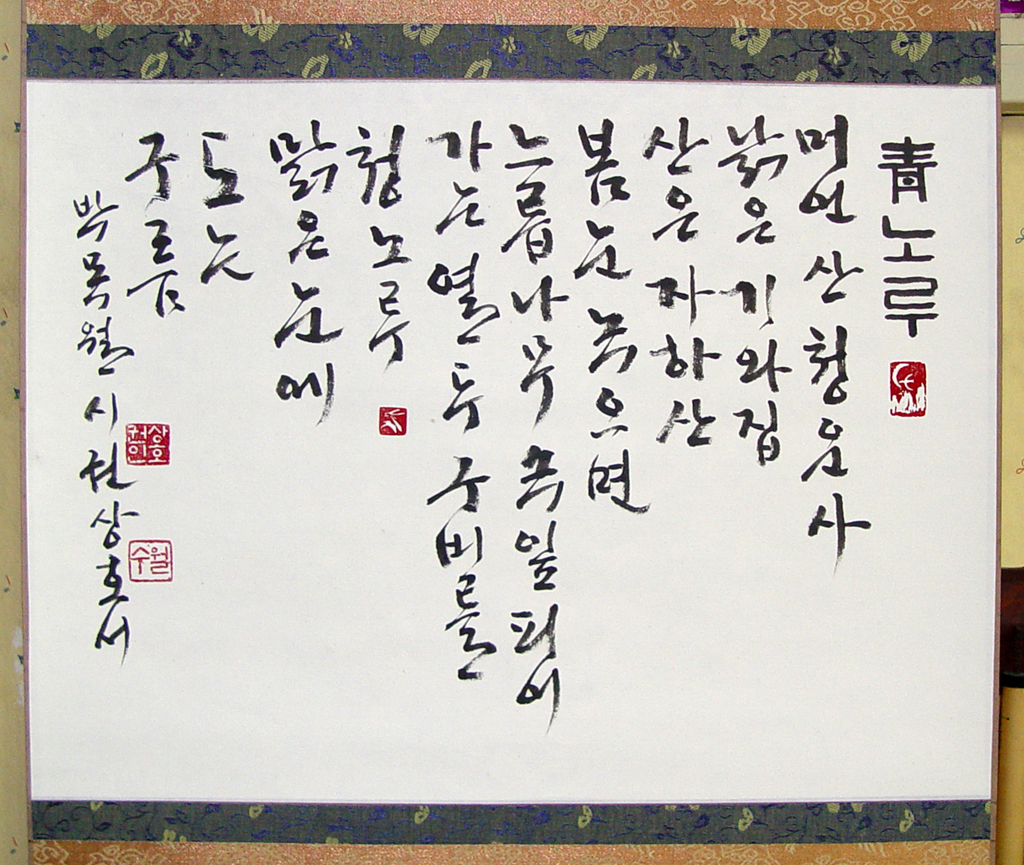 青노루
머언 산 청운사
낡은 기와집
산은 자하산
봄눈 녹으면
느릅나무 속잎 피어
가는 열두 구비를
청노루
맑은 눈에
도는
구름
박목월 시 권상호 서
권상호인
수월